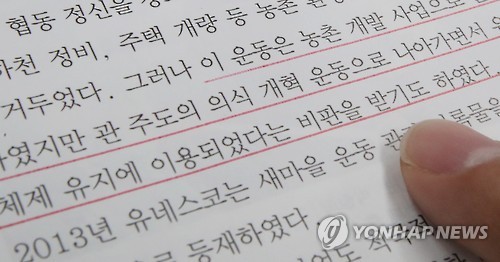 협동 정신을
하천 정비, 주택 개량 등 농촌
거두었다. 그러나 이 운동은 농촌 개발 사업으로
하였지만 관 주도의 의식 개혁 운동으로 나아가면서
체제 유지에 이용되었다는 비판을 받기도 하였다.
2013년 유네스코는 새마을 운동
등재하였다
YONHAP NEWS